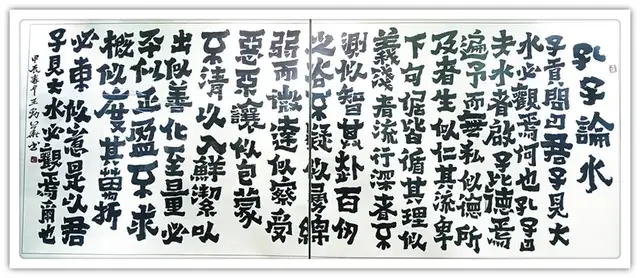 孔子論水
子貢問曰君子見大
水必觀焉何也孔子曰
夫水者啟子比德焉
遍予而無私似德所
及者生似仁其流卑
下句倨皆循其理似
義淺者流行深者不
測似智其赴百仞
之谷不疑似勇綿
弱而微達似察受
惡不讓似包蒙
不清以入鮮潔以
出似善化至量必
平似正盈不求
概似度其萬折
必東似意是以君
子見大水必觀焉爾也
甲辰春王書